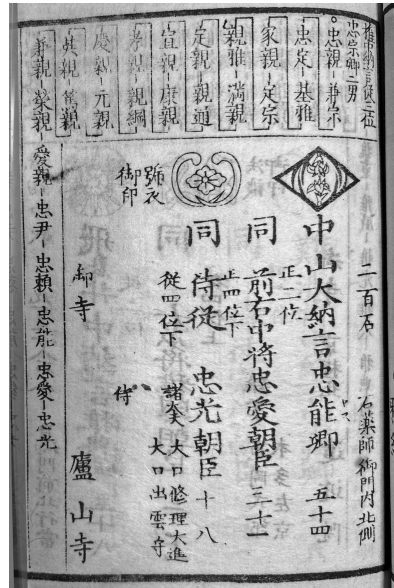 権中納言従二位
忠宗卿二男
忠親－兼宗
忠定－基雅
家親－定宗
親雅－満親
定親－親通
宣親－康親
孝親－親綱
慶親－元親
英親－篤親
兼親－榮親
愛親－忠尹－忠頼－忠能－忠愛－忠光
二百石
石薬師御門内北側
中山大納言忠能卿 五十四
正二位
同 前右中将忠愛朝臣 三十二
正四位下
同 侍従 忠光朝臣 十八
従四位下
諸大夫 大口修理大進
侍 大口出雲守
號衣
御印
御寺 廬山寺